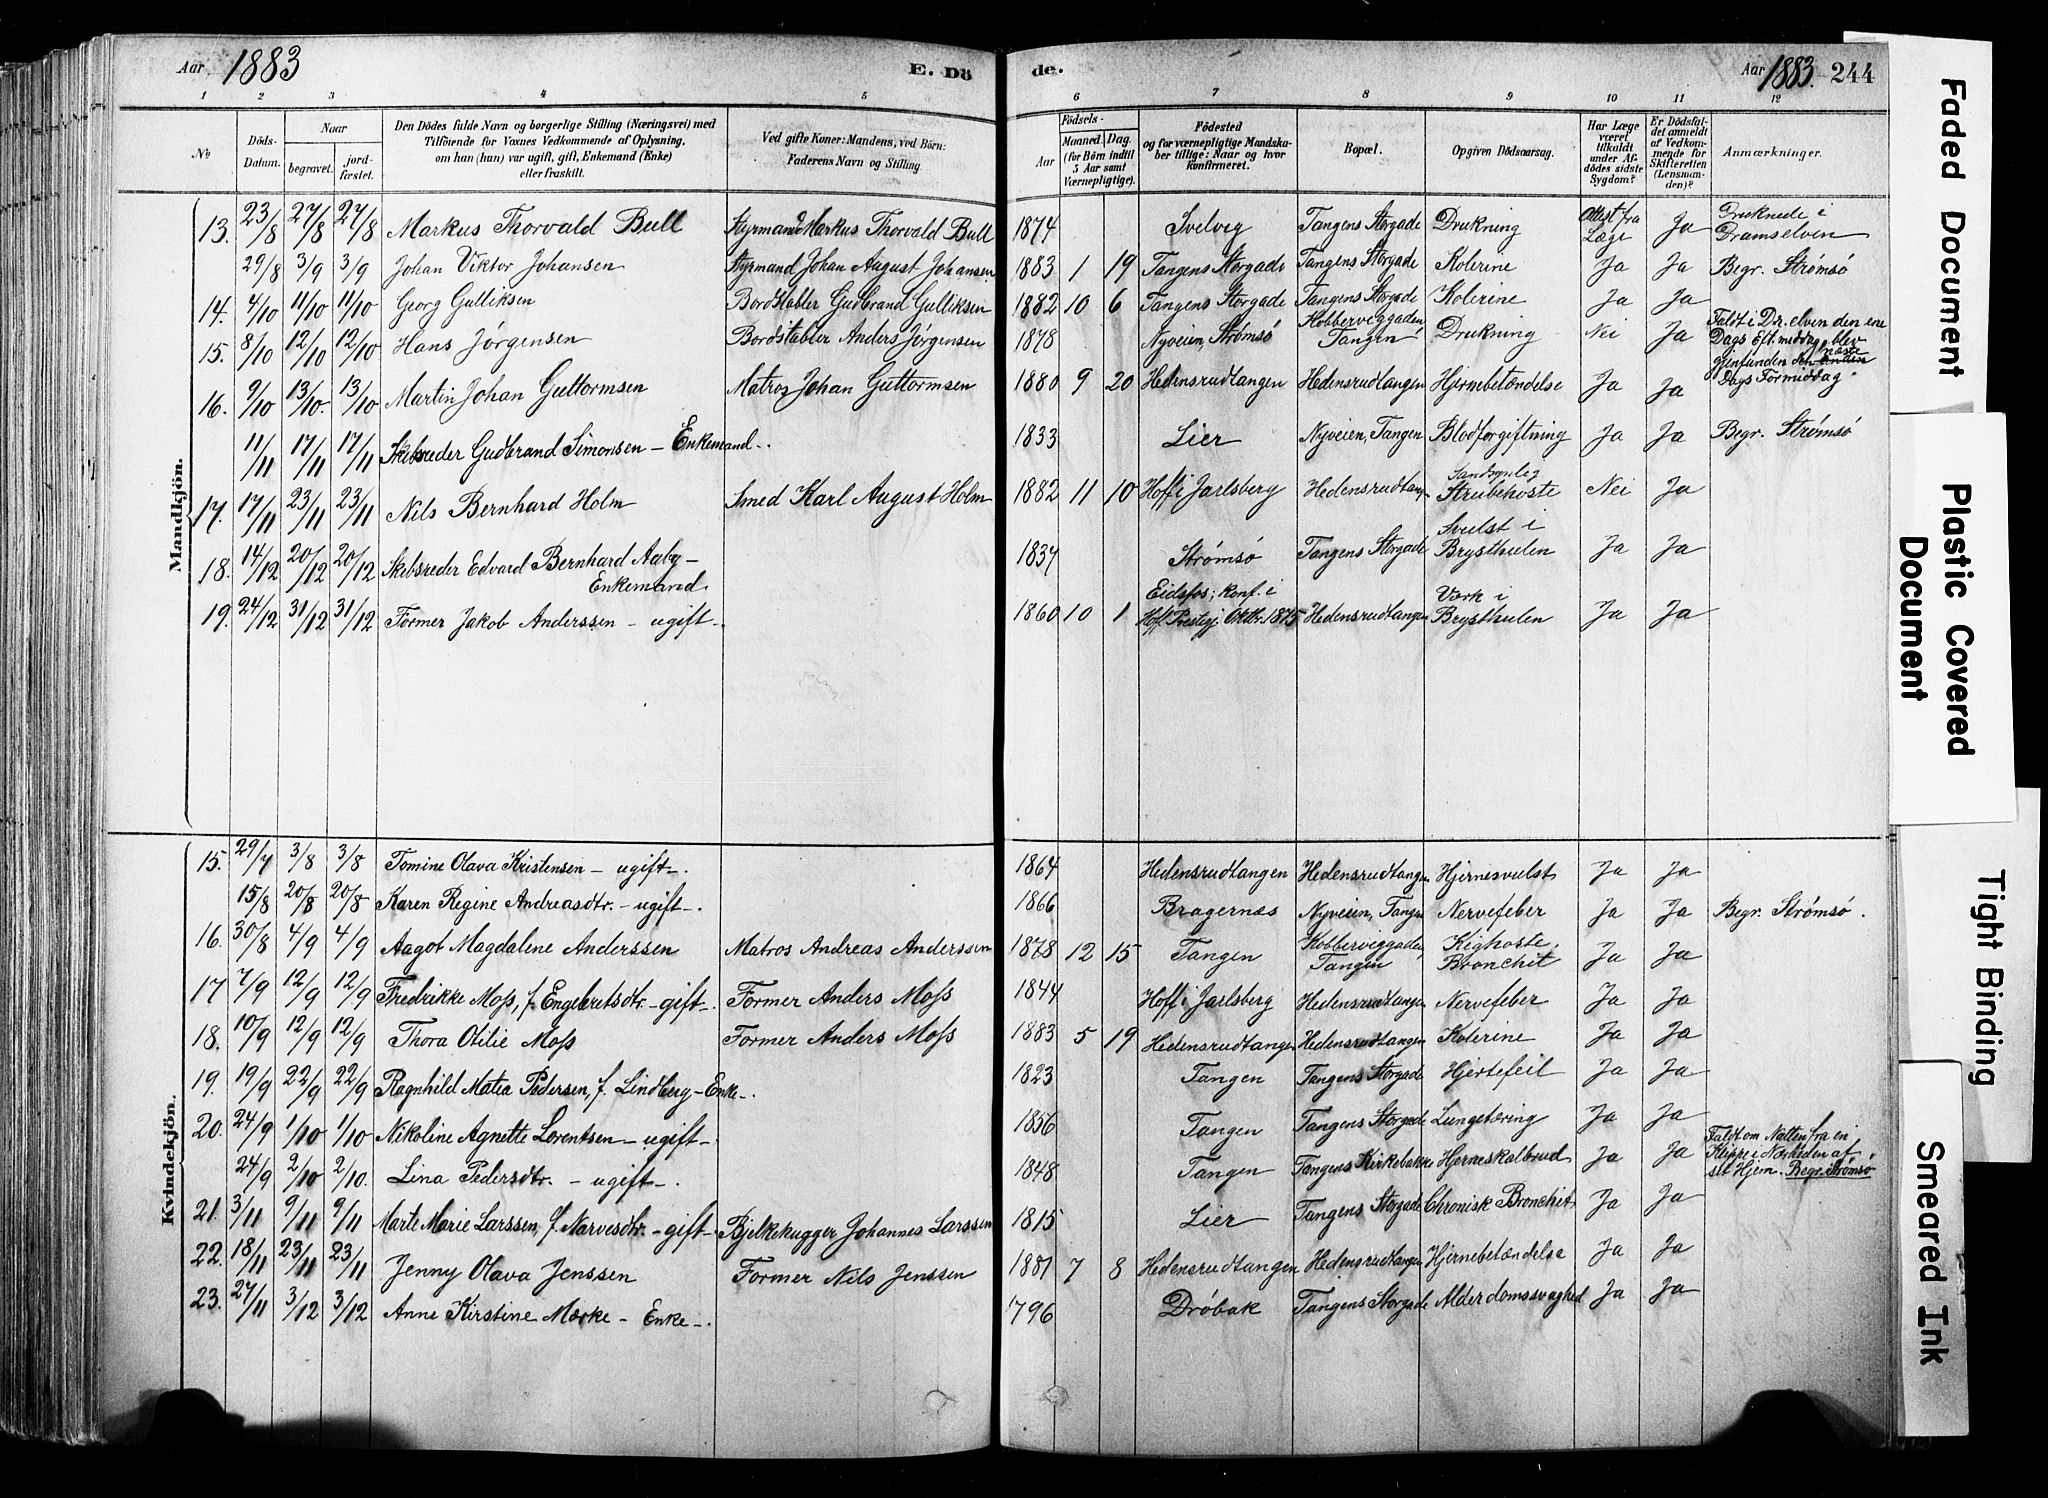 Aar 1883 E. Dö
de. Aar 1883. 244
1 2 3 4 5 6 7 8 9 10 11 12
No Döds-Datum. Naar begravet. jordfæstet. Den Dödes fulde Navn og borgerlige Stilling (Næringsvei) med Tilföiende for Voxnes Vedkommende af Oplysning, om han (hun) var ugift, gift, Enkemand (Enke) eller fraskilt. Ved gifte Koner: Mandens, ved Börn: Faderens Navn og Stilling.
Födsels- Aar Maaned. Dag. (for Börn indtil 5 Aar samt Værnepligtige). Födested og for værnepligtige Mandskaber tillige: Naar og hvor konfirmeret. Bopæl. Opgiven Dödsaarsag. Har Læge været tilkaldt under Afdödes sidste Sygdom? Er Dödsfaldet anmeldt af Vedkommende for Skifteretten (Lensmanden)? Anmærkninger.
Mandkjön.
13. 23/8 27/8 27/8 Markus Thorvald Bull Styrmand Markus Thorvald Bull 1874 Svelvig Tangens Storgade Drukning Attest fra Læge Ja Druknede i Dramselven
29/8 3/9 3/9 Johan Viktor Johansen Styrmand Johan August Johansen 1883 1 19 Tangens Storgade Tangens Storgade Kolerine Ja Ja Begr. Strømsø
14. 4/10 11/10 11/10 Georg Gulliksen Bordstabler Gudbrand Gulliksen 1882 10 6 Tangens Storgade Tangens Storgade Kolerine Ja Ja
15. 8/10 12/10 12/10 Hans Jørgensen Bordstabler Anders Jørgensen 1878 Nyveien, Strømsø Kobberveggaden, Tangen Drukning Nei Ja Faldt i Dr. elven den ene Dags Eft. middag, blev gjenfunden den næste Dags Formiddag.
16. 9/10 13/10. 13/10 Martin Johan Guttormsen Matros Johan Guttormsen 1880 9 20 Hedensrudtangen Hedensrudtangen Hjernebetændelse Ja Ja
11/11 17/11 17/11 Skibsreder Gudbrand Simonsen - Enkemand -. 1833 Lier Nyveien, Tangen Blodforgiftning Ja Ja Begr. Strømsø
17. 17/11 23/11 23/11 Nils Bernhard Holm Smed Karl August Holm 1882 11 10 Hoff i Jarlsberg Hedensrudtang. Sandsynleg Strubehoste Nei Ja
18. 14/12 20/12 20/12 Skibsreder Edvard Bernhard Aaby - Enkemand 1837 Strømsø Tangens Storgade Svulst i Brysthulen Ja Ja
19. 24/12 31/12 31/12 Former Jakob Anderssen - ugift -. 1860 10 1 Eidsfos; konf. i Hoff Prestegj. Oktbr. 1875 Hedensrudtangen Værk i Brysthulen Ja Ja
Kvindekjön.
15. 29/7 3/8 3/8 Tomine Olava Kristensen - ugift -. 1864 Hedensrudtangen Hedensrudtangen Hjernesvulst Ja Ja
15/8 20/8 20/8 Karen Regine Andreasdtr. - ugift -. 1866 Bragernæs Nyveien, Tangen Nervefeber Ja Ja Begr. Strømsø.
16. 30/8 4/9 4/9 Aagot Magdalene Anderssen Matros Andreas Anderssen 1878 12 15 Tangen Kobberviggaden, Tangen Kighoste, Bronchit Ja Ja
17 7/9 12/9 12/9 Fredrikke Moss, f. Engebretsdtr. - gift -. Former Anders Moss 1844 Hoff i Jarlsberg Hedensrudtangen Nervefeber Ja Ja
18. 10/9 12/9 12/9 Thora Otilie Moss Former Anders Moss 1883 5 19 Hedensrudtangen Hedensrudtangen Kolerine Ja Ja
19. 19/9 22/9 22/9 Ragnhild Matia Pedersen, f. Lindberg - Enke -. 1823 Tangen Tangens Storgade Hjertefeil Ja Ja
20. 24/9 1/10 1/10 Nikoline Agnette Lorentsen - ugift -. 1856 Tangen Tangens Storgade Lungetæring Ja Ja
24/9 2/10 2/10. Lina Pedersdtr. - ugift -. 1848 Tangen Tangens Kirkebakke Hjerneskalbrud Ja Ja Faldt om Natten fra en Klippe i Nærheden af sit Hjem. Begr. i Strømsø
21. 3/11 9/11 9/11 Marte Marie Larssen, f. Narvesdtr. - gift -. Bjelkehugger Johannes Larssen 1815 Lier Tangens Storgade Chronisk Bronchit Ja Ja
22. 18/11 23/11 23/11 Jenny Olava Jenssen Former Nils Jenssen 1881 7 8 Hedensrudtangen Hedensrudtangen Hjernebetændelse Ja Ja
23. 27/11 3/12 3/12 Anne Kirstine Mørke - Enke -. 1796 Drøbak Tangens Storgade Alderdomssvaghed Ja Ja
Faded Document
Plastic Covered Document
Tight Binding
Smeared Ink